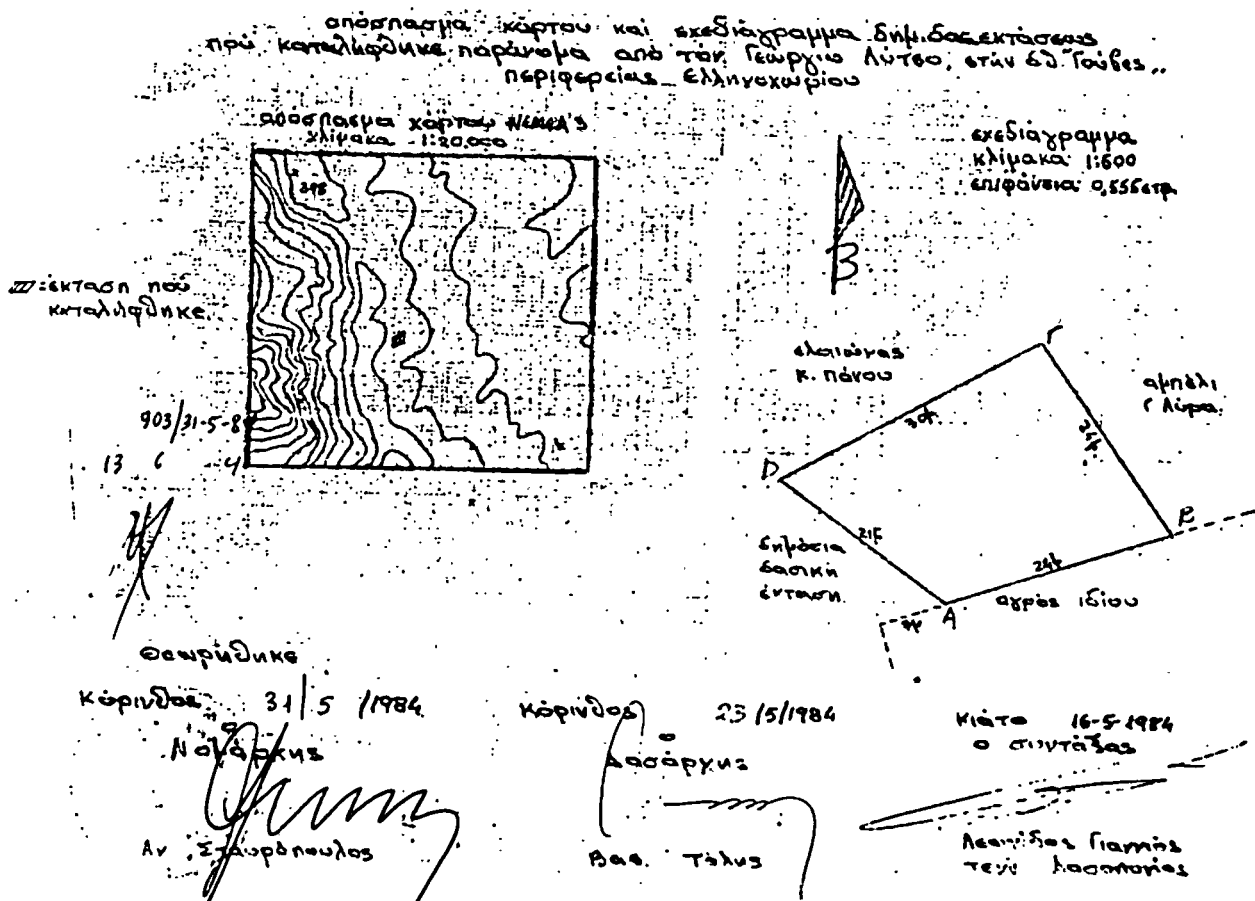 απόσπασμα χάρτου και σχεδιάγραμμα δημ. δας. εκτάσεως
πού καταλήφθηκε παράνομα από τόν Γεώργιο Λύτσο, στήν θ. "Γούβες"
περιφερείας Ελληνοχωρίου
απόσπασμα χάρτου ΝΕΜΕΑ'S
κλίμακα 1:20.000
σχεδιάγραμμα
κλίμακα 1:600
επιφάνεια 0,555 στρ.
395
Β
III: έκταση πού
καταλήφθηκε
III
ελαιώνας
κ. Πάνου
Γ
αμπέλι
Γ Λύρα
30μ
24μ.
903/31-5-84
13 6
D
Β
δημόσια
δασική
έκταση
21μ
24μ
αγρός ιδίου
Α
Θεωρήθηκε
Κόρινθος 31/5/1984
Ο
Νομάρχης
Αν. Σταυρόπουλος
Κόρινθος 23/5/1984
ο
Δασάρχης
Βας. Τόλης
Κιάτο 16-5-1984
ο συντάξας
Λεωνίδας Γιαννής
τεχν. Δασοπονίας